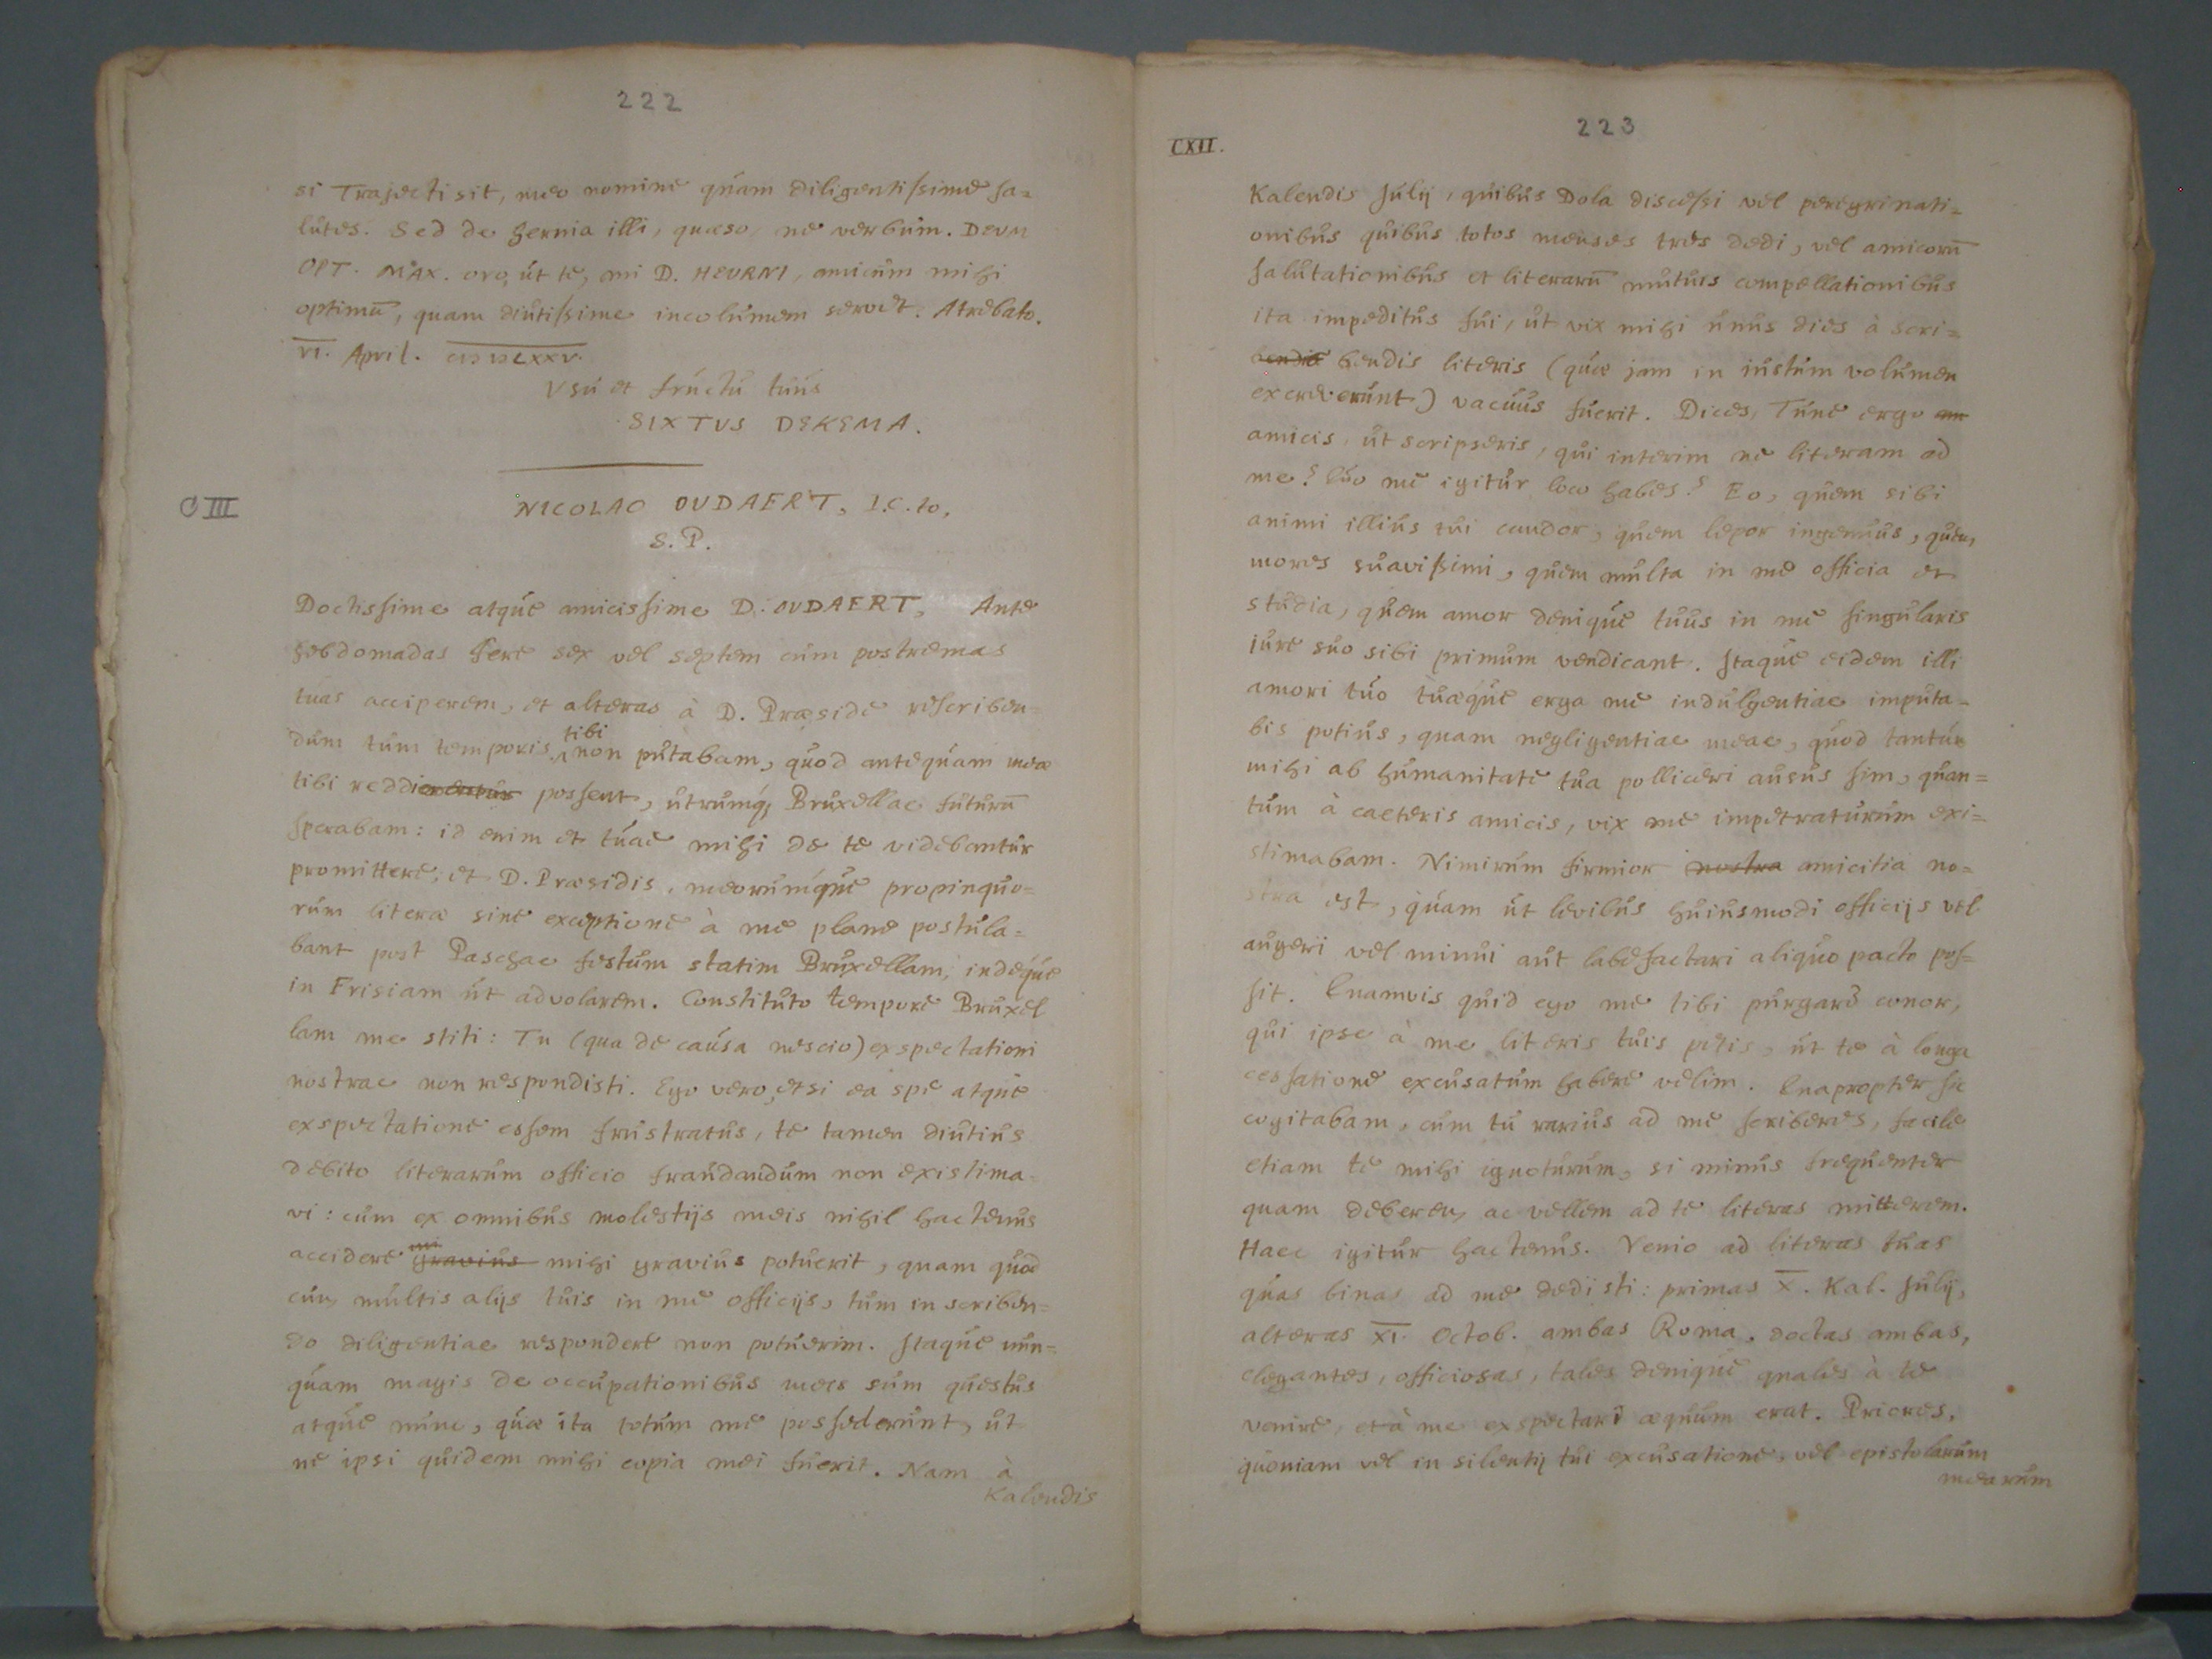 222
si Trajecti sit, meo nomine quam diligentissime sa=
lutes. Sed de hernia illi, quaeso, ne verbum. DEUM
OPT. MAX. oro, ut te, mi D. HEURNI, amicum mihi
optimū, quam diutissime incolumem servet. Atrebato.
VI. April. CIƆ IƆ LXXV.
Usu et fructu tuus
SIXTUS DEKEMA.
CIII
NICOLAO OUDAERT, I.C.to.
S.P.
Doctissime atque amicissime D. OUDAERT, Ante
hebdomadas fere sex vel septem cum postremas
tuas acciperem, et alteras à D. Præside rescriben=
dum tum temporis tibi non putabam, quod antequam meæ
tibi reddi possent, utrumq; Bruxellae futurū
sperabam: id enim et tuae mihi de te videbantur
promittere, et D. Præsidis, meorumque propinquo=
rum literæ sine exceptione à me plane postula=
bant post Paschae festum statim Bruxellam, indeque
in Frisiam ut advolarem. Constituto tempore Bruxel
lam me stiti: Tu (qua de causa nescio) exspectationi
nostrae non respondisti. Ego vero, etsi ea spe atque
exspectatione essem frustratus, te tamen diutius
debito literarum officio fraudandum non existima=
vi: cum ex omnibus molestijs meis nihil hactenus
accidere gravius mihi gravius potuerit, quam quod
cum multis alijs tuis in me officijs, tum in scriben=
do diligentiae respondere non potuerim. Itaque nun=
quam magis de occupationibus meis sum questus
atque nunc, quæ ita totum me possederunt, ut
ne ipsi quidem mihi copia mei fuerit. Nam à
Kalendis
223
CXII.
Kalendis Julij, quibus Dola discessi vel peregrinati=
onibus quibus totos menses tres dedi, vel amicorū
salutationibus et literarū mutuis compellationibus
ita impeditus fui, ut vix mihi unus dies à scri=
bendis literis (quæ jam in iustum volumen
excreverunt) vacuus fuerit. Dices, Tune ergo
amicis, ut scripseris, qui interim ne literam ad
me? Quo me igitur loco habes? Eo, quem sibi
animi illius tui candor, quem lepor ingenuus, quem
mores suavissimi, quem multa in me officia et
studia, quem amor denique tuus in me singularis
iure suo sibi primum vendicant. Itaque eidem illi
amori tuo tuæque erga me indulgentiae imputa=
bis potius, quam negligentiae meae, quod tantum
mihi ab humanitate tua polliceri ausus sim, quan=
tum à caeteris amicis, vix me impetraturum exi=
stimabam. Nimirum firmior nostra amicitia no=
stra est, quam ut levibus huiusmodi officijs vel
augeri vel minui aut labefactari aliquo pacto pos=
sit. Quamvis quid ego me tibi purgare conor,
qui ipse à me literis tuis petis, ut te à longa
cessatione excusatum habere velim. Quapropter sic
cogitabam, cum tu rarius ad me scriberes, facile
etiam te mihi ignoturum, si minus frequenter
quam deberem ac vellem ad te literas mitterem.
Haec igitur hactenus. Venio ad literas tuas
quas binas ad me dedisti: primas X. Kal. Julij,
alteras XI. Octob. ambas Roma. doctas ambas,
elegantes, officiosas, tales denique quales à te
venire, et à me exspectari æquum erat. Priores,
quoniam vel in silentij tui excusatione, vel epistolarum
mearum